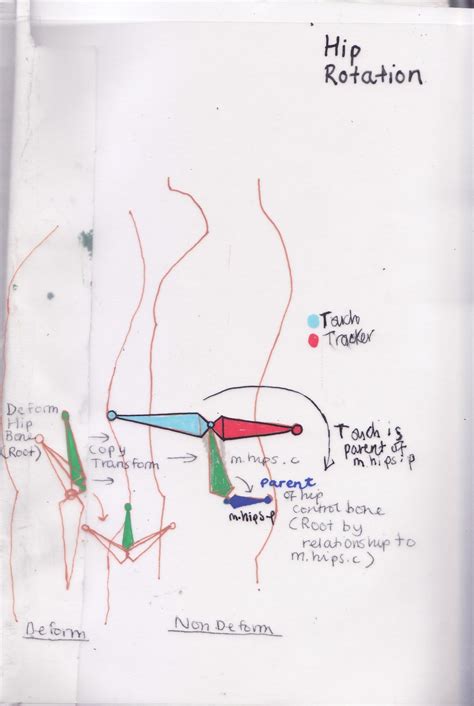 Hip
Rotation
Touch
Tracker
Deform
Hip
Bone
(Root)
Copy
Transform
m.hips.c
Touch is
parent of
m.hips.p
parent
of hip
control bone
(Root by
relationship to
m.hips.c)
m.hips.p
Deform
Non Deform